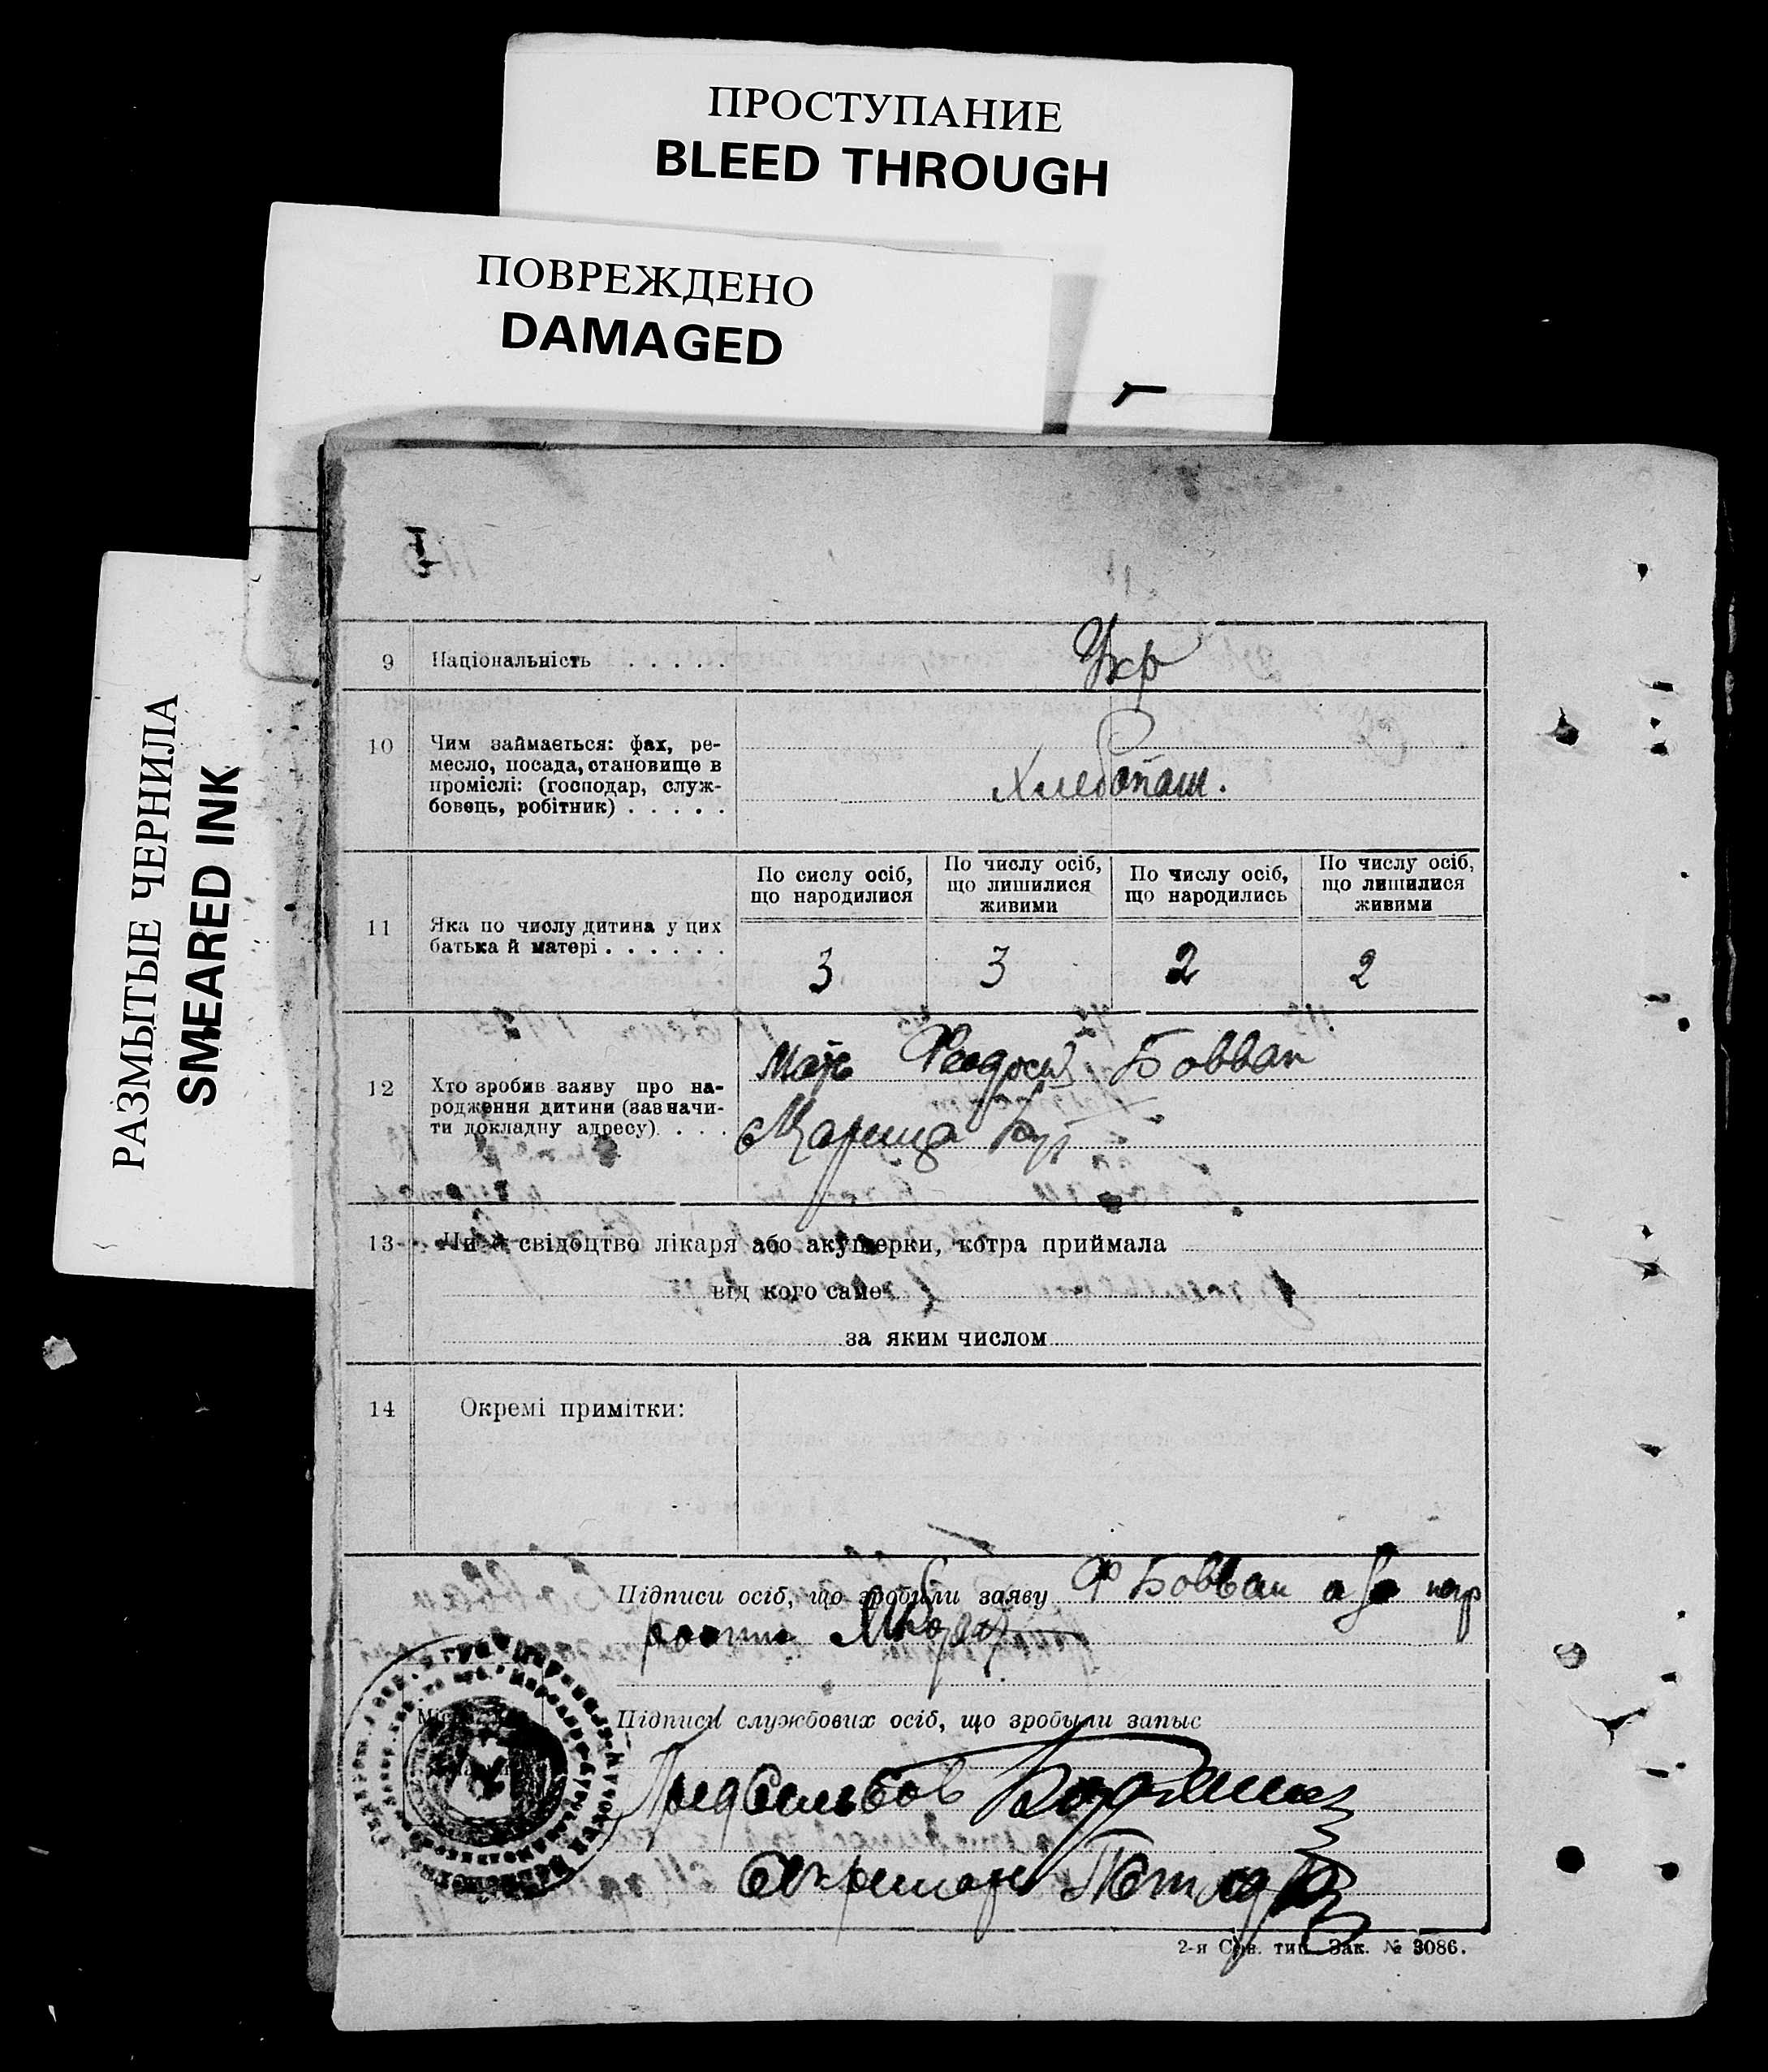 ПРОСТУПАНИЕ
BLEED THROUGH
ПОВРЕЖДЕНО
DAMAGED
РАЗМЫТЫЕ ЧЕРНИЛА
SMEARED INK
9 Національність . . . . . Укр
10 Чим займається: фах, ре-
месло, посада, становище в
проміслі: (господар, служ-
бовець, робітник) . . . . .
Хлебопаш.
По сислу осіб,
що народилися
По числу осіб,
що лишилися
живими
По числу осіб,
що народились
По числу осіб,
що лишилися
живими
11 Яка по числу дитина у цих
батька й матері . . . . . .
3 3 2 2
12 Хто зробив заяву про на-
родження дитини (зазначи-
ти докладну адресу) . . .
Мать Феодосия Бовван
13 Чи є свідоцтво лікаря або акушерки, котра приймала
від кого саме
за яким числом
14 Окремі примітки:
Підписи осіб, що зробили заяву Ф Бовван а за негр
Підписи службових осіб, що зробыли запыс
Секретарь
2-я Сов. тип. Зак. № 3086.